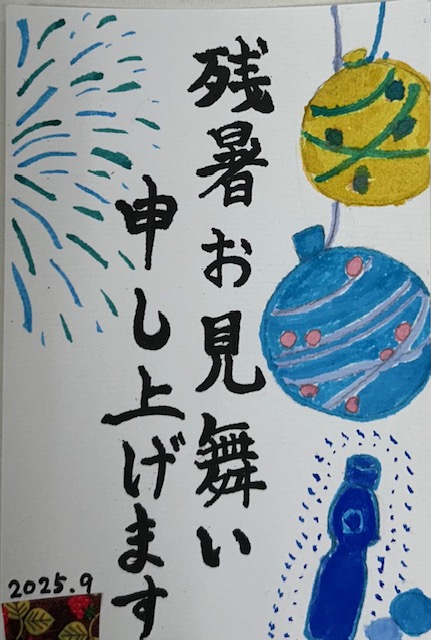 残暑お見舞い
申し上げます
2025.9